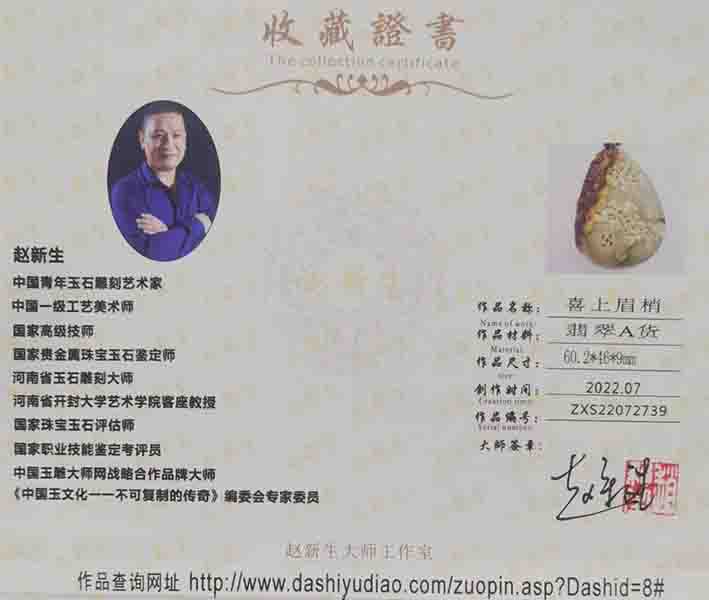 收藏證書
The collection certificate
赵新生
中国青年玉石雕刻艺术家
中国一级工艺美术师
国家高级技师
国家贵金属珠宝玉石鉴定师
河南省玉石雕刻大师
河南省开封大学艺术学院客座教授
国家珠宝玉石评估师
国家职业技能鉴定考评员
中国玉雕大师网战略合作品牌大师
《中国玉文化一一不可复制的传奇》编委会专家委员
作品名称： 喜上眉梢
Name of work:
作品材料： 翡翠A货
Material:
作品尺寸： 60.2*46*9mm
size:
创作时间： 2022.07
Creation time:
作品编号： ZXS22072739
Serial number:
大师签章：
赵新生
赵新生大师工作室
作品查询网址 http://www.dashiyudiao.com/zuopin.asp?Dashid=8#